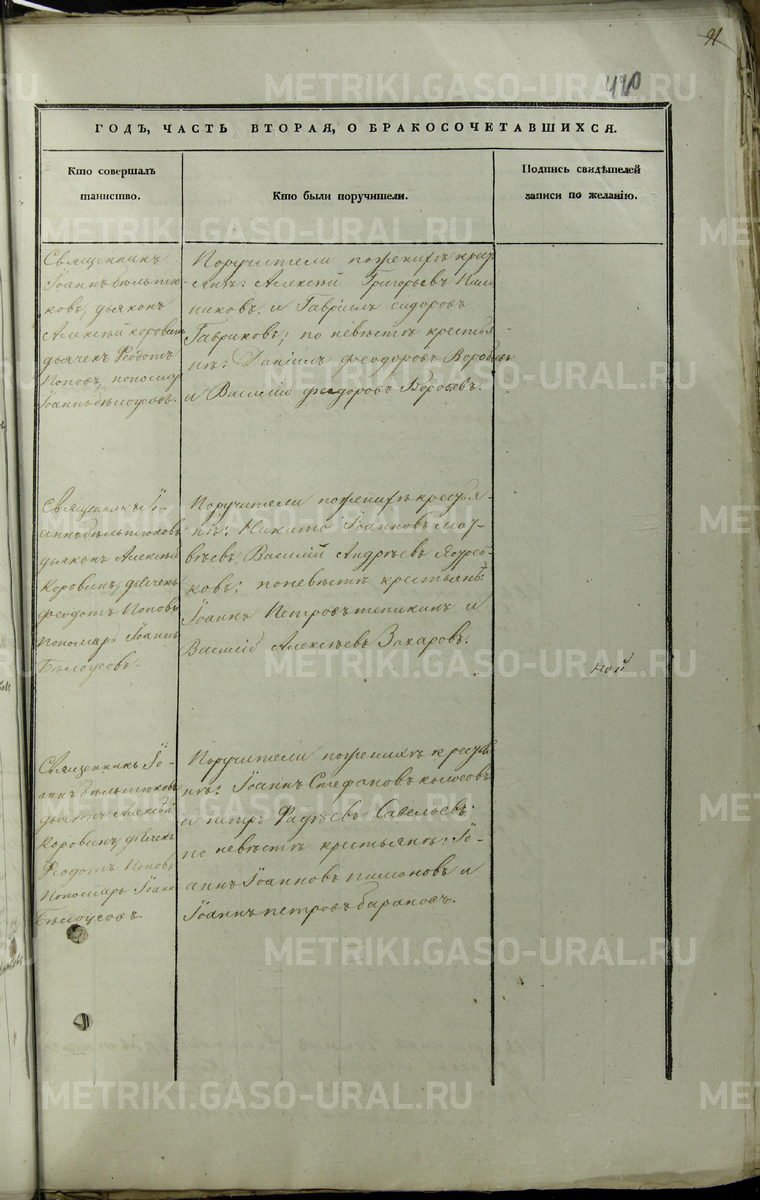 91
420
ГОДЪ, ЧАСТЬ ВТОРАЯ, О БРАКОСОЧЕТАВШИХСЯ.
Кто совершалъ
таинство.
Кто были поручители.
Подпись свидѣтелей
записи по желанію.
Священникъ
Іоаннъ бѣльтю-
ковъ, дьяконъ
Алексѣй коровинъ
дьячекъ Ѳеодотъ
Поповъ, пономарь
Іоаннъ бѣлоусовъ.
Поручители по женихѣ кресть-
янѣ: Алексѣй Григорьевъ
никовъ. и Гавріилъ сидоровъ
Гавриковъ; по невѣстѣ крестья-
нѣ: Даніилъ феодоровъ Воробьевъ
и Василій феодоровъ Воробьевъ.
Священникъ Іо-
аннъ бѣльтюковъ
дьяконъ Алексѣй
Коровинъ, дьячекъ
феодотъ Поповъ
пономарь Іоаннъ
Бѣлоусовъ.
Поручители по женихѣ крестья-
нѣ: Никита Іоанновъ мат-
вѣевъ, Василій Андрѣевъ
ковъ: по невѣстѣ крестьянѣ:
Іоаннъ Петровъ и
Василій Алексѣевъ Захаровъ.
ной
Священникъ Іо-
аннъ бѣльтюковъ
дьяконъ Алексѣй
Коровинъ, дьячекъ
Ѳеодотъ Поповъ
Пономарь Іоаннъ
Бѣлоусовъ.
Поручители по женихѣ крестья
нѣ: Іоаннъ Стефановъ колосовъ
и петръ Фадѣевъ Савельевъ:
по невѣстѣ крестьянѣ: Іо-
аннъ Іоанновъ пимоновъ и
Іоаннъ петровъ барановъ.
METRIKI.GASO-URAL.RU